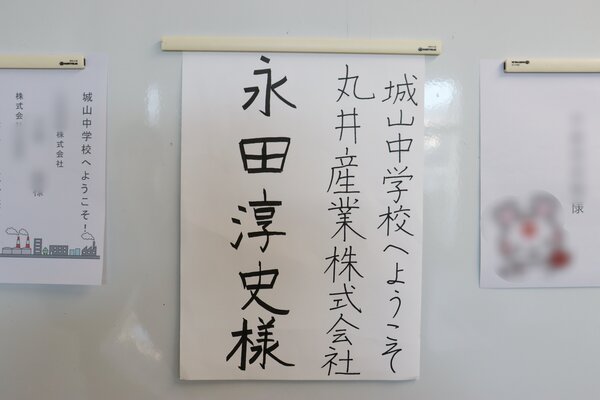 城山中学校へようこそ
丸井産業株式会社
永田淳史様
城山中学校へようこそ！
株式会社
株式会
様
様